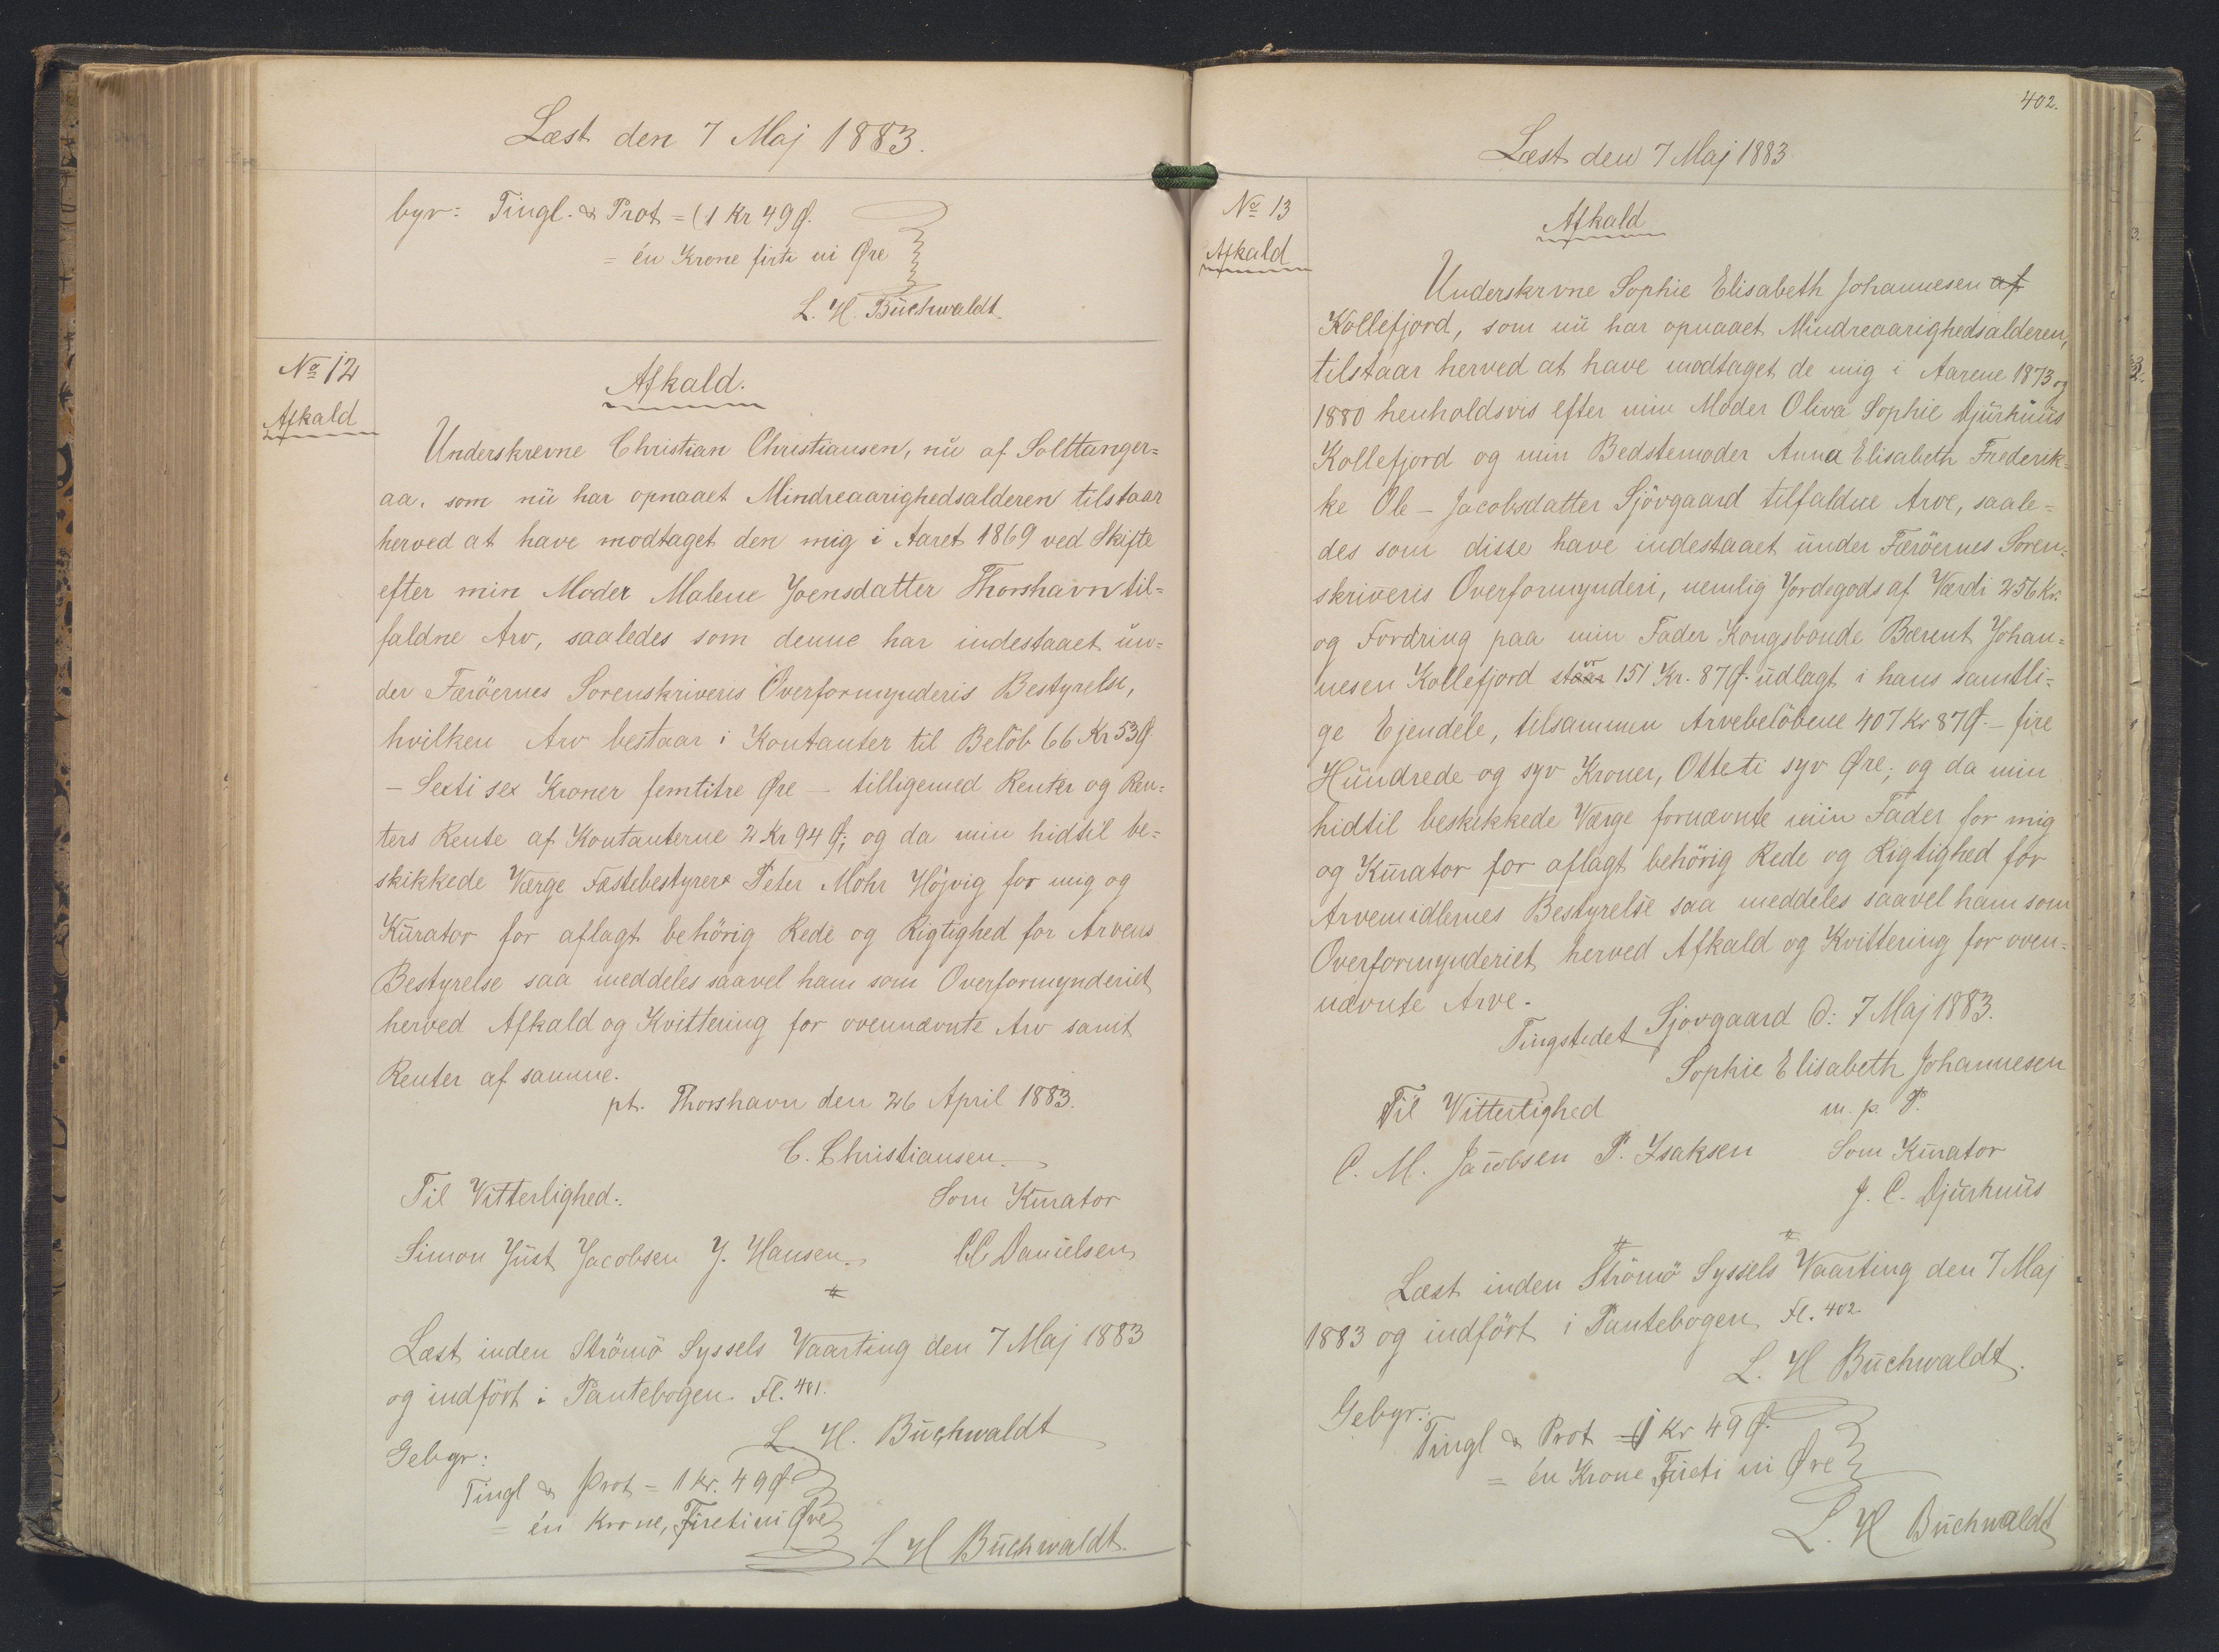 Læst den 7 Maj 1883.
byr: Tingl. & Prot = (1 Kr 49 Ø.
= én Krone firti ni Øre
L. H. Buchwaldt
No 12
Afkald
Afkald.
Underskrevne Christian Christiansen, nu af Solttanger=
aa, som nu har opnaaet Mindreaarighedsalderen tilstaar
herved at have modtaget den mig i Aaret 1869 ved Skifte
efter min Moder Malene Joensdatter Thorshavn til=
faldne Arv, saaledes som denne har indestaaet un=
der Færöernes Sorenskriveris Overformynderis Bestyrelse,
hvilken Arv bestaar i Kontanter til Belöb 66 Kr 53 Ø.
— Sexti sex Kroner femtitre Øre — tilligemed Renter og Ren=
ters Rente af Kontanterne 2 Kr 94 Ø; og da min hidtil be=
skikkede Værge Fæstebestyrer Peter Mohr Höjvig for mig og
Kurator for aflagt behörig Rede og Rigtighed for Arvens
Bestyrelse saa meddeles saavel ham som Overformynderiet
herved Afkald og Kvittering for ovennævnte Arv samt
Renter af samme.
pt. Thorshavn den 26 April 1883.
C. Christiansen
Til Vitterlighed:
Som Kurator
Simon Just Jacobsen J. Hansen.
CC Danielsen
Læst inden Strömö Syssels Vaarting den 7 Maj 1883
og indfört i Pantebogen Fl. 401.
L. H. Buchwaldt
Gebyr:
Tingl & Prot = 1 Kr. 49 Ø
= én Krone, Firetini Øre
L H Buchwaldt.
402.
Læst den 7 Maj 1883
No 13
Afkald
Afkald
Underskrvne Sophie Elisabeth Johannesen af
Kollefjord, som nu har opnaaet Mindreaarighedsalderen,
tilstaar herved at have modtaget de mig i Aarene 1873 og
1880 henholdsvis efter min Moder Oliva Sophie Djurhuus
Kollefjord og min Bedstemoder Anna Elisabeth Frederik=
ke Ole-Jacobsdatter Sjövgaard tilfaldne Arve, saale=
des som disse have indestaaet under Færöernes Soren=
skriveris Overformynderi, nemlig Jordegods af Værdi 256 Kr.
og Fordring paa min Fader Kongsbonde Bærent Johan=
nesen Kollefjord staar 151 Kr. 87 Ø. udlagt i hans samtli=
ge Ejendele, tilsammen Arvebelöbene 407 Kr 87 Ø. — fire
Hundrede og syv Kroner, Otteti syv Øre; og da min
hidtil beskikkede Værge fornævnte min Fader for mig
og Kurator for aflagt behörig Rede og Rigtighed for
Arvemidlernes Bestyrelse saa meddeles saavel ham som
Overformynderiet herved Afkald og Kvittering for oven=
nævnte Arve.
Tingstedet Sjovgaard d: 7 Maj 1883.
Sophie Elisabeth Johannesen
m. p. P.
Til Vitterlighed
Som Kurator
C. M. Jacobsen P. Isaksen
J. C. Djurhuus
Læst inden Strömö Syssels Vaarting den 7 Maj
1883 og indfört i Pantebogen Fl. 402
L. H Buchwaldt.
Gebyr:
Tingl & Prot = 1 Kr 49 Ø.
= én Krone Fireti ni Øre
L. H Buchwaldt